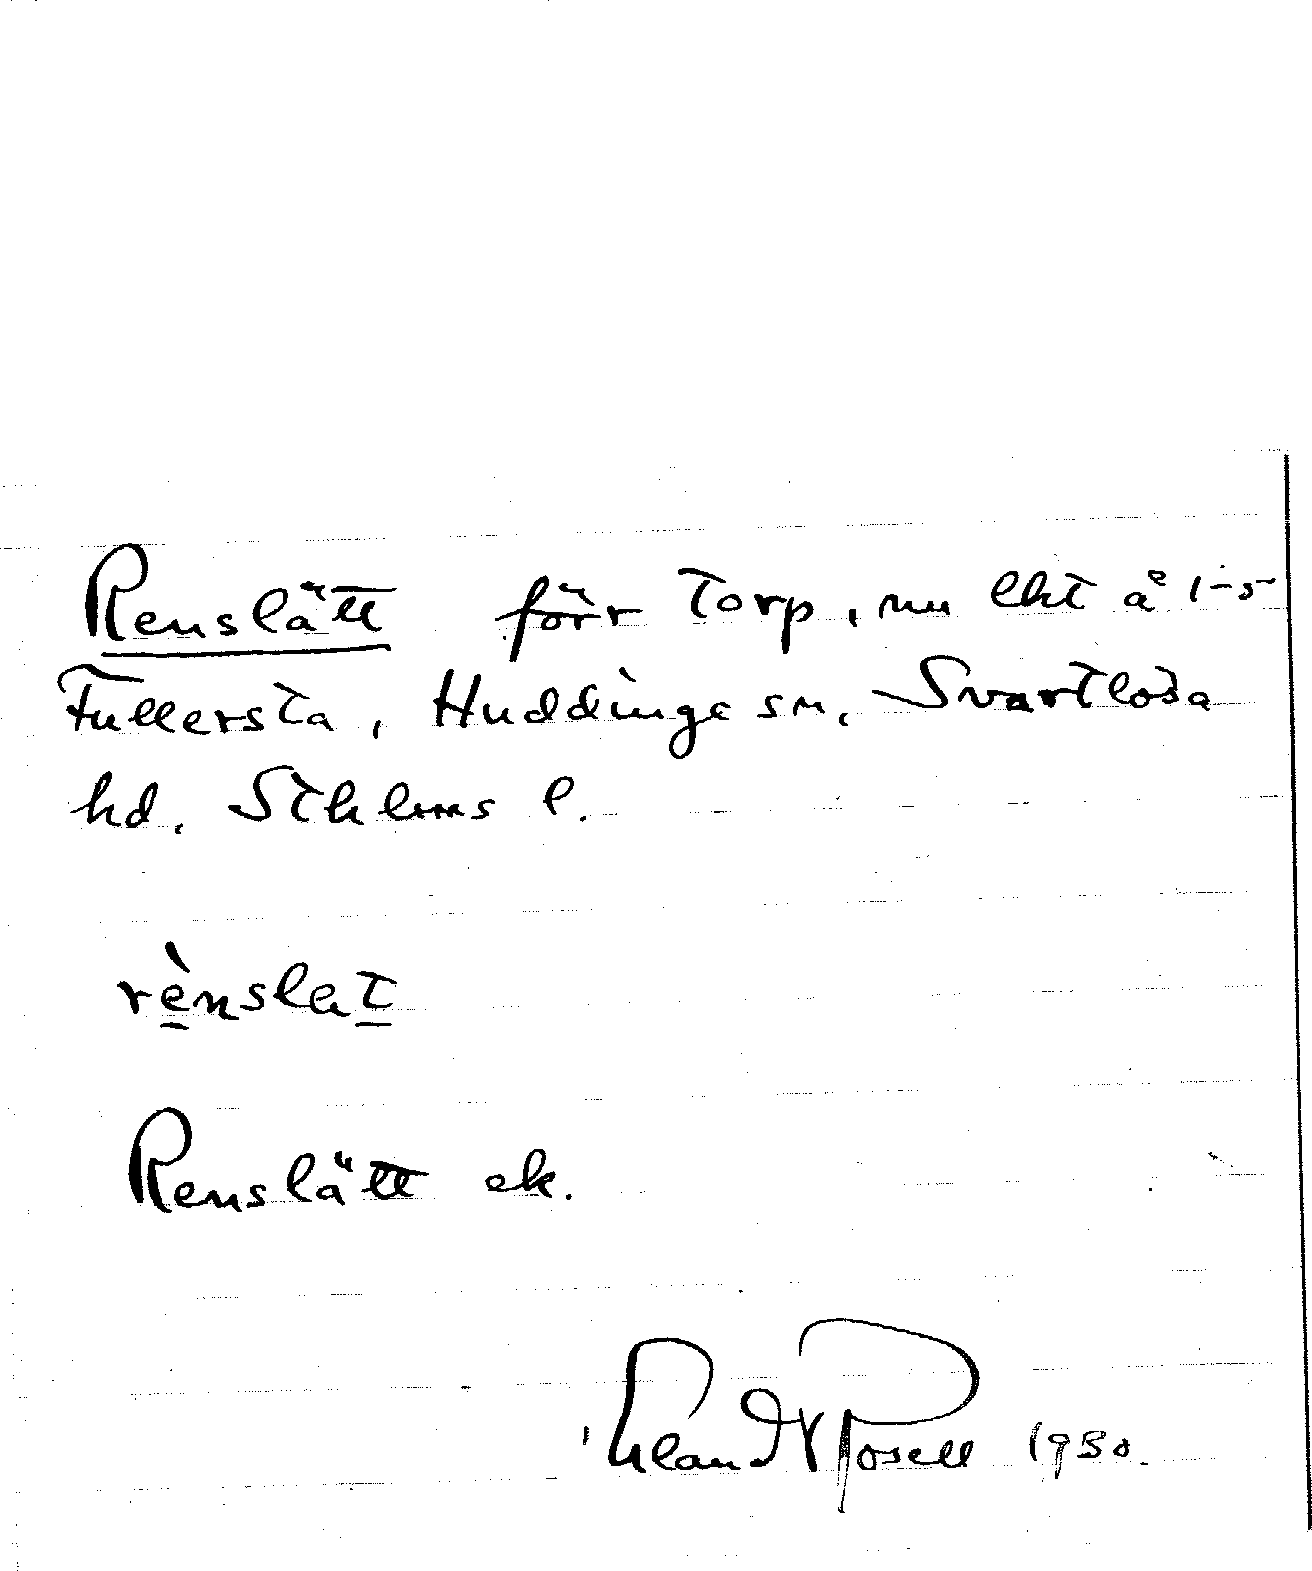 Renslätt förr torp, nu lht å 1-5
Fullersta, Huddinge sn, Svartlösa
hd, Sthlms l.
rènslat
Renslätt ek.
Erland Rosell 1980.